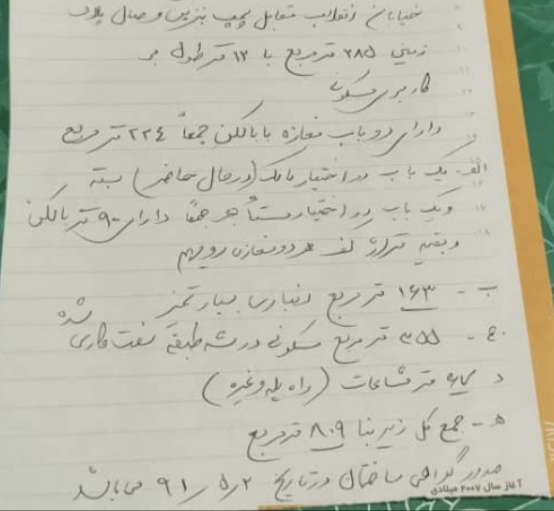 خیابان انقلاب مقابل پمپ بنزین وصال پلاک
زمینی ۲۸۵ مترمربع با ۱۲ متر طول بر
کاربری مسکونی
دارای دو باب مغازه با بالکن جمعاً ۲۲۴ مترمربع
الف - یک باب در اختیار مالک (در حال حاضر) بسته
و یک باب در اختیار مستأجر جمعاً دارای ۹۰ متر بالکن
و بقیه متراژ کف هر دو مغازه رویهم
ب - ۱۶۳ مترمربع انباری بسیار تمیز
ج - ۳۵۵ مترمربع مسکونی در سه طبقه سفت کاری شده
د متر مشاعات (راه پله و غیره)
ه - جمع کل زیربنا ۸۰۹ مترمربع
صدور گواهی ساختمان در تاریخ ۹۱/۵/۲ می باشد
آغاز سال ۲۰۰۷ میلادی